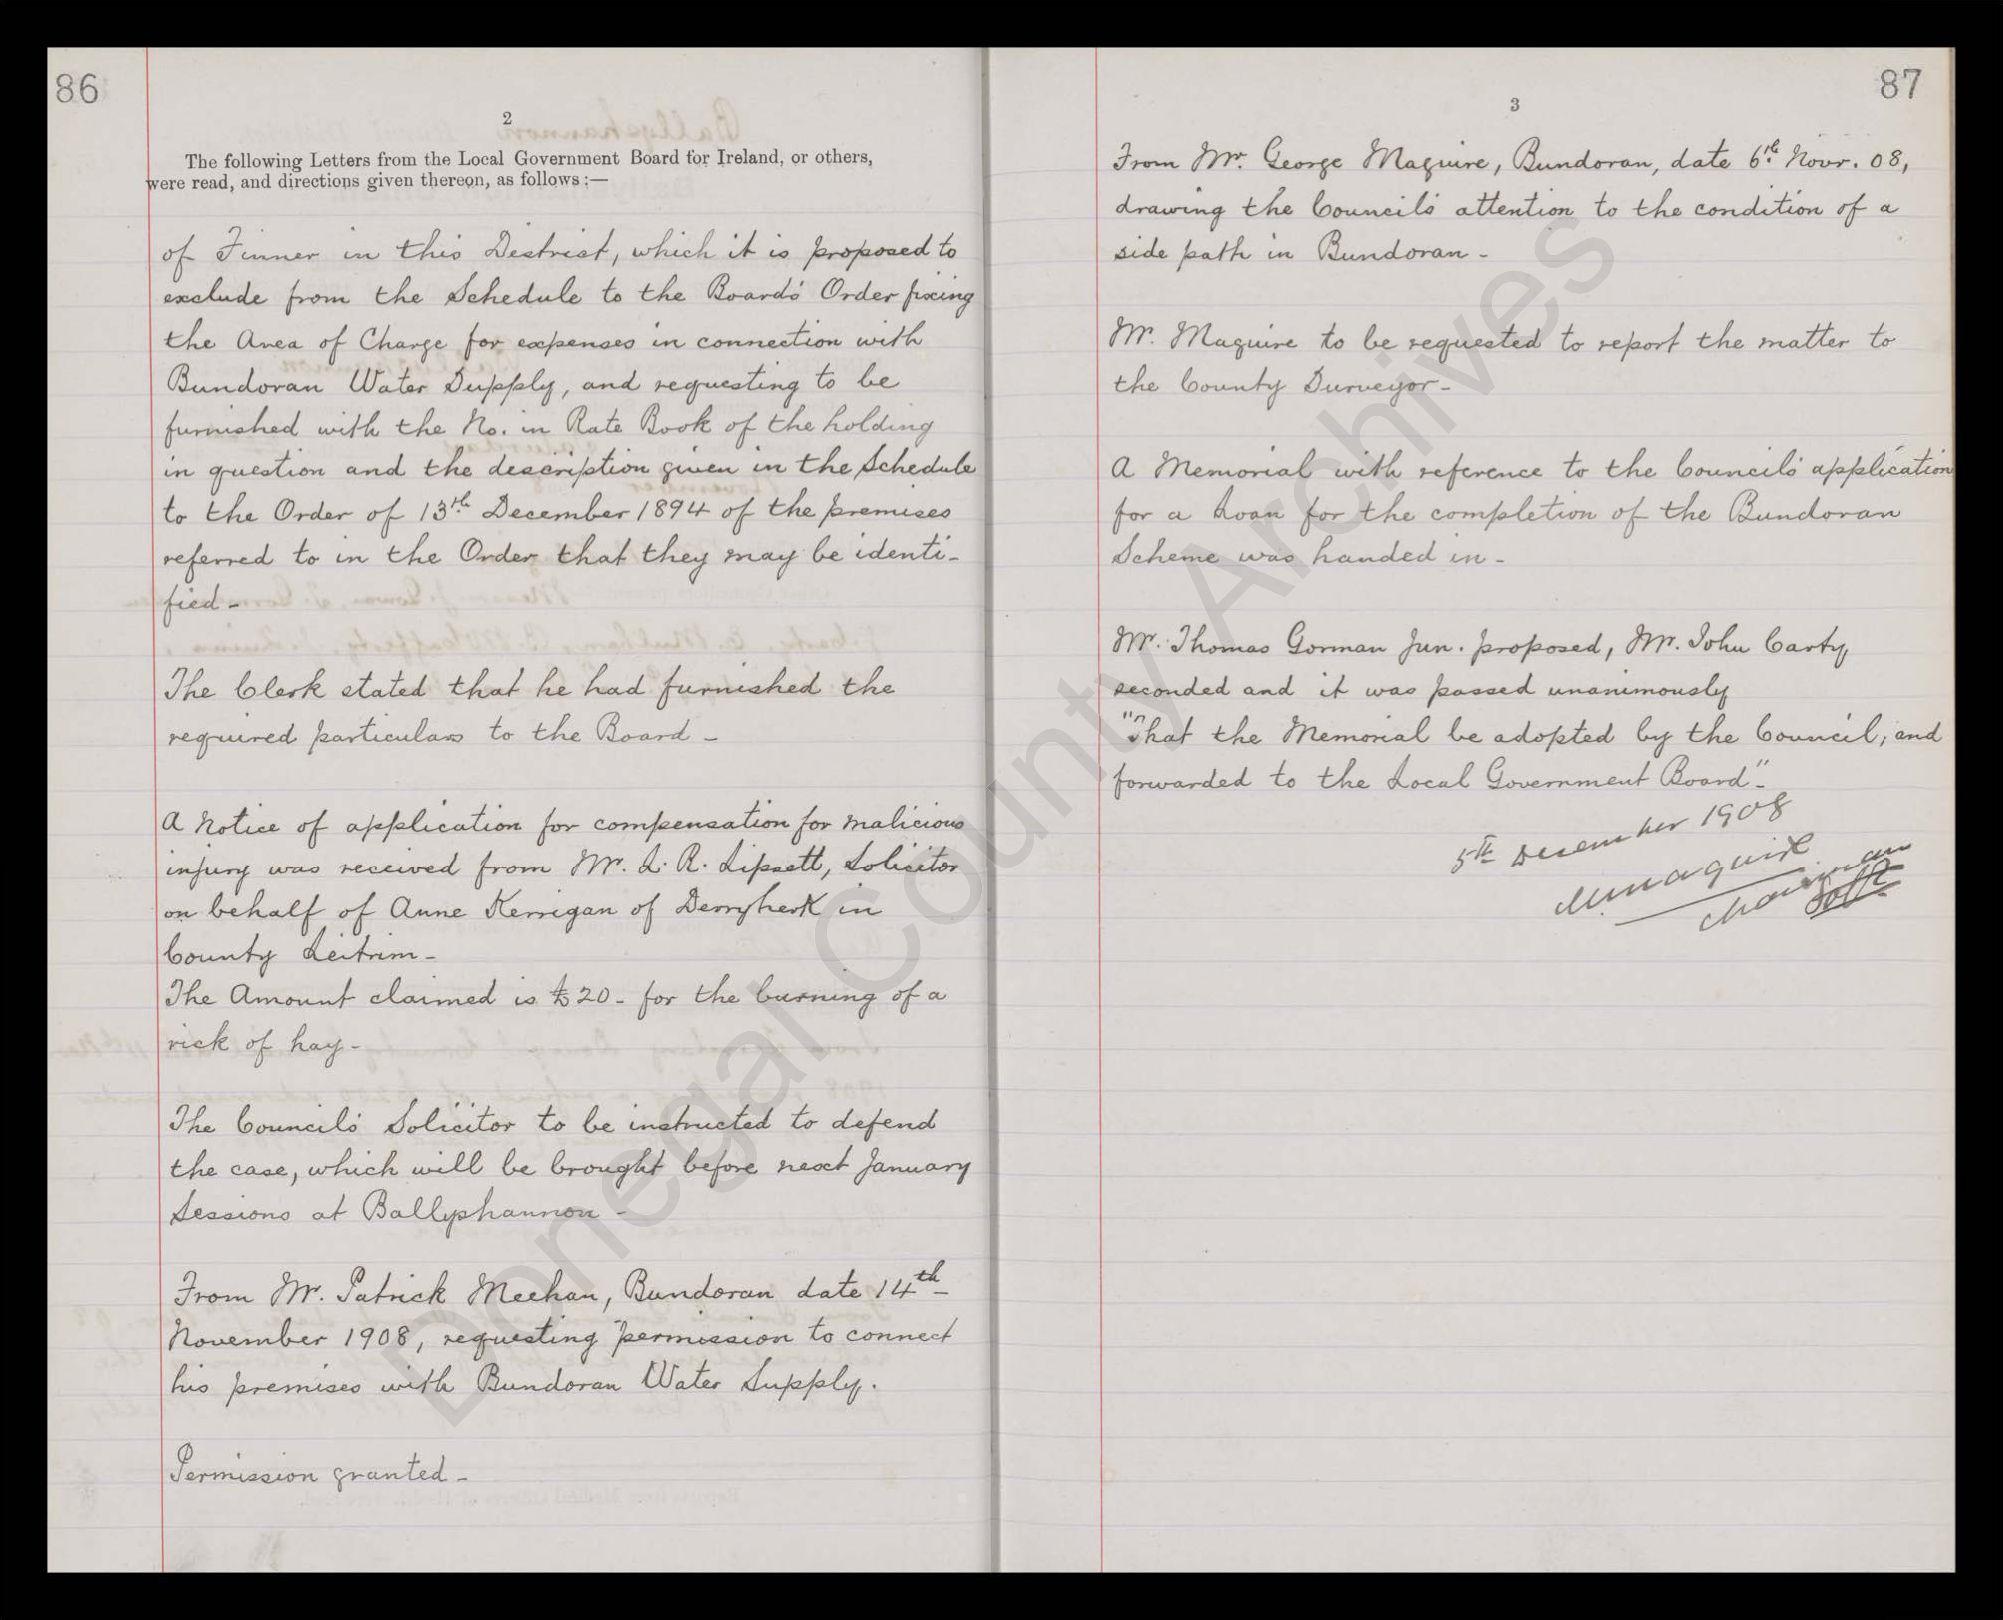 86
2
The following Letters from the Local Government Board for Ireland, or others,
were read, and directions given thereon, as follows :—
of Finner in this District, which it is proposed to
exclude from the Schedule to the Board's Order fixing
the Area of Charge for expenses in connection with
Bundoran Water Supply, and requesting to be
furnished with the No. in Rate Book of the holding
in question and the description given in the Schedule
to the Order of 13th December 1894 of the premises
referred to in the Order that they may be identi-
fied -
The Clerk stated that he had furnished the
required particulars to the Board -
A Notice of application for compensation for malicious
injury was received from Mr. L. R. Lipsett, Solicitor
on behalf of Anne Kerrigan of Derryherk in
County Leitrim -
The Amount claimed is £20 - for the burning of a
rick of hay -
The Council's Solicitor to be instructed to defend
the case, which will be brought before next January
Sessions at Ballyshannon -
From Mr. Patrick Meehan, Bundoran date 14th
November 1908, requesting permission to connect
his premises with Bundoran Water Supply.
Permission granted -
87
3
From Mr. George Maguire, Bundoran, date 6th Novr. 08,
drawing the Council's attention to the condition of a
side path in Bundoran -
Mr. Maguire to be requested to report the matter to
the County Surveyor -
A Memorial with reference to the Council's application
for a Loan for the completion of the Bundoran
Scheme was handed in -
Mr. Thomas Gorman Jun. proposed, Mr. John Carty,
seconded and it was passed unanimously
"That the Memorial be adopted by the Council, and
forwarded to the Local Government Board" -
5th December 1908
Maguire
Chairman
Donegal County Archives